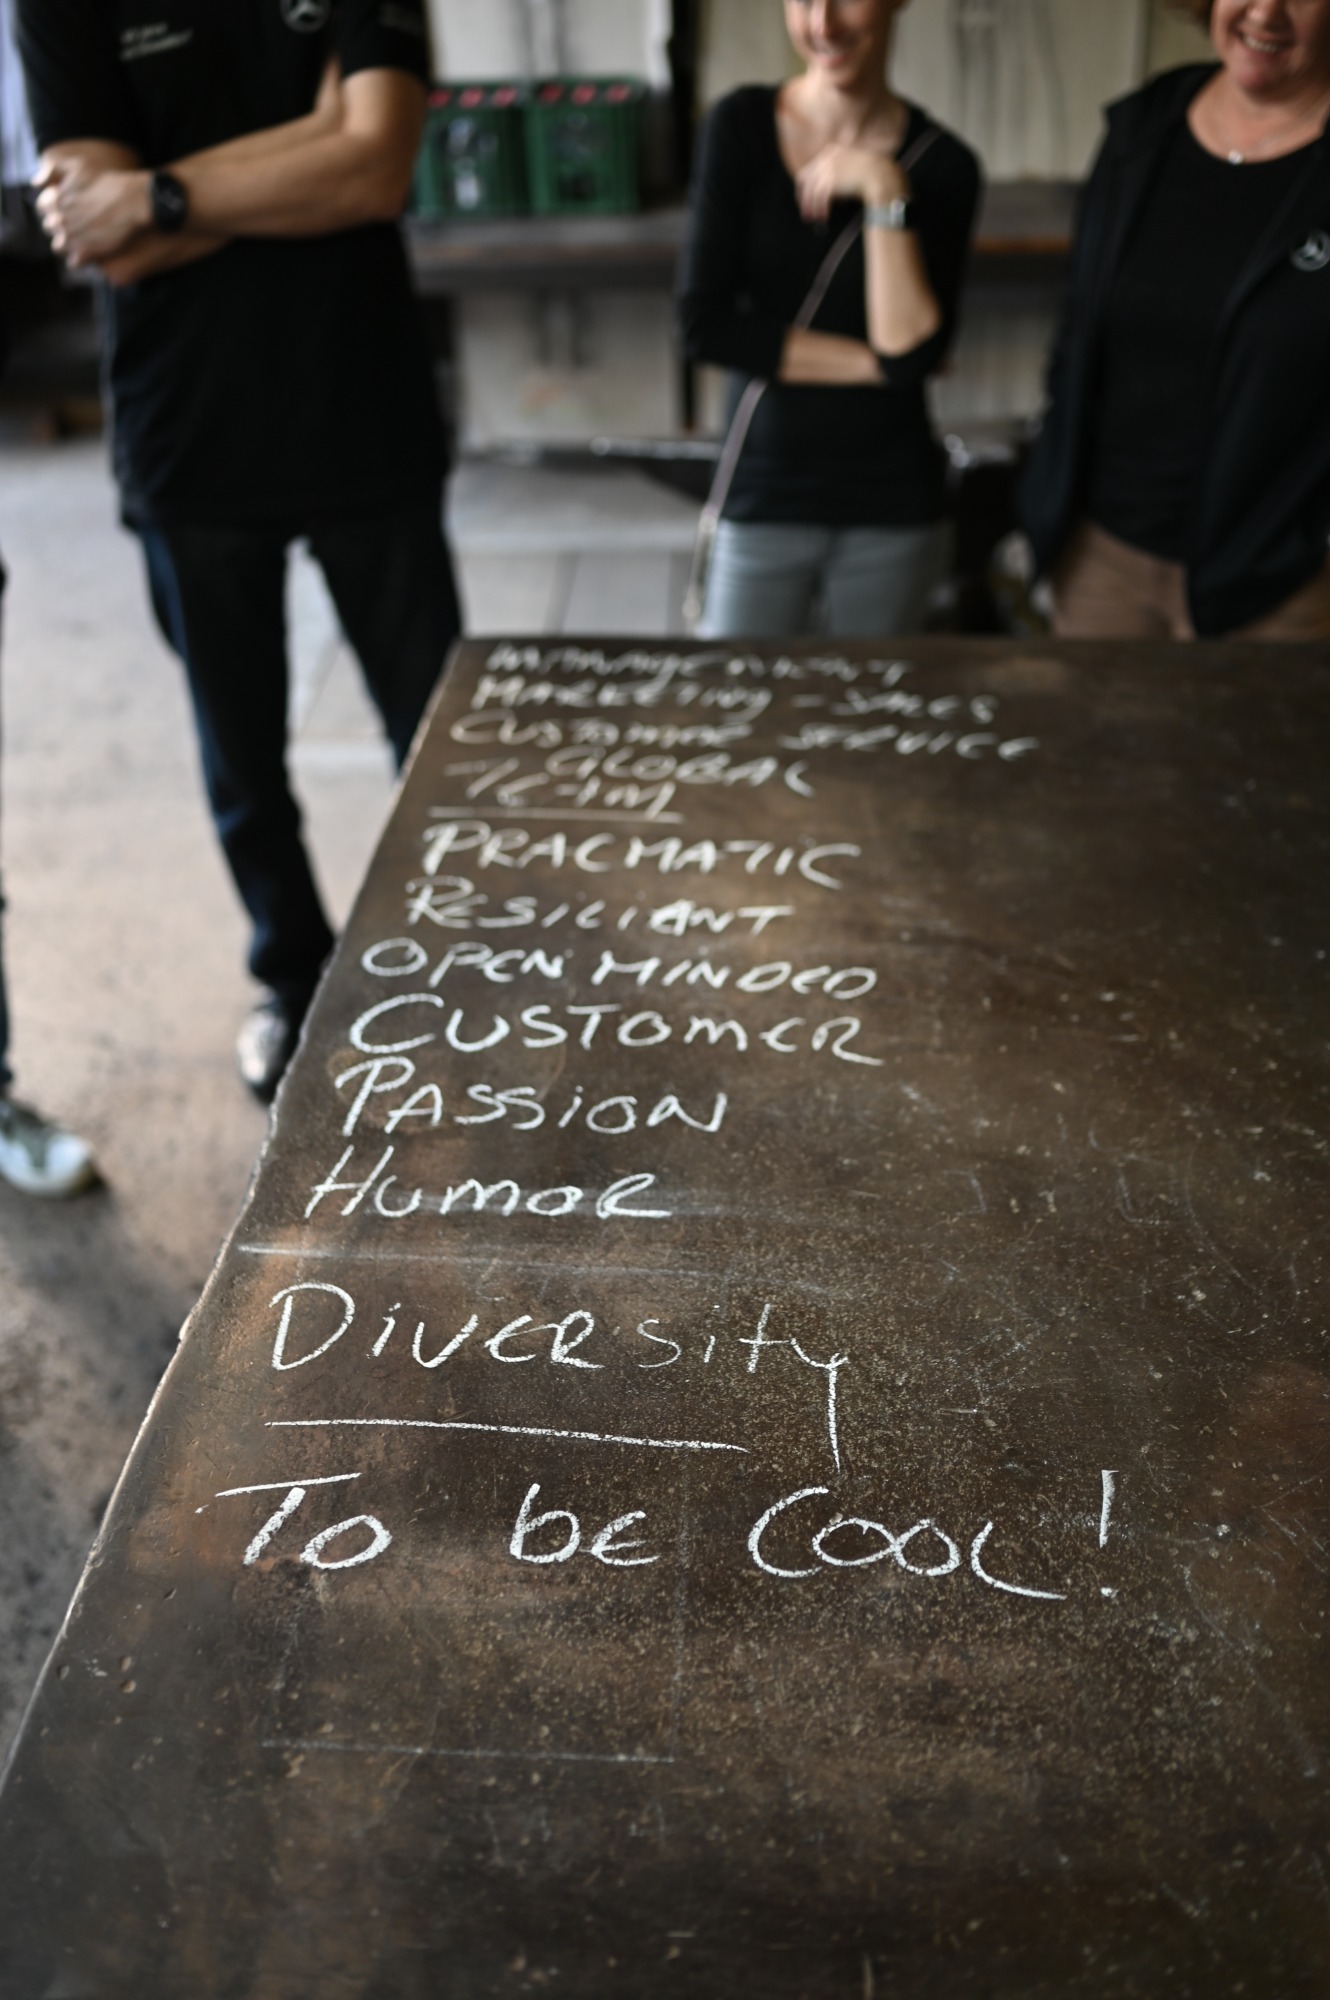 MANAGEMENT
MARKETING - SALES
CUSTOMER SERVICE
GLOBAL
TEAM
PRAGMATIC
RESILIANT
OPEN MINDED
CUSTOMER
PASSION
HUMOR
DIVERSity
To bE COOL!